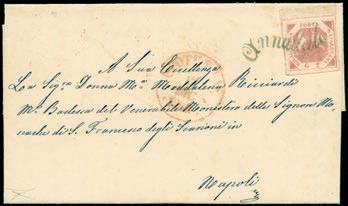 Annullato
A Sua Eccellenza
La Sig.ra Donna M.a Maddalena Ricciardi
M.a Badessa del Venerabile Monistero delle Signore Mo-
nache di S. Francesco degli Scarioni in
Napoli